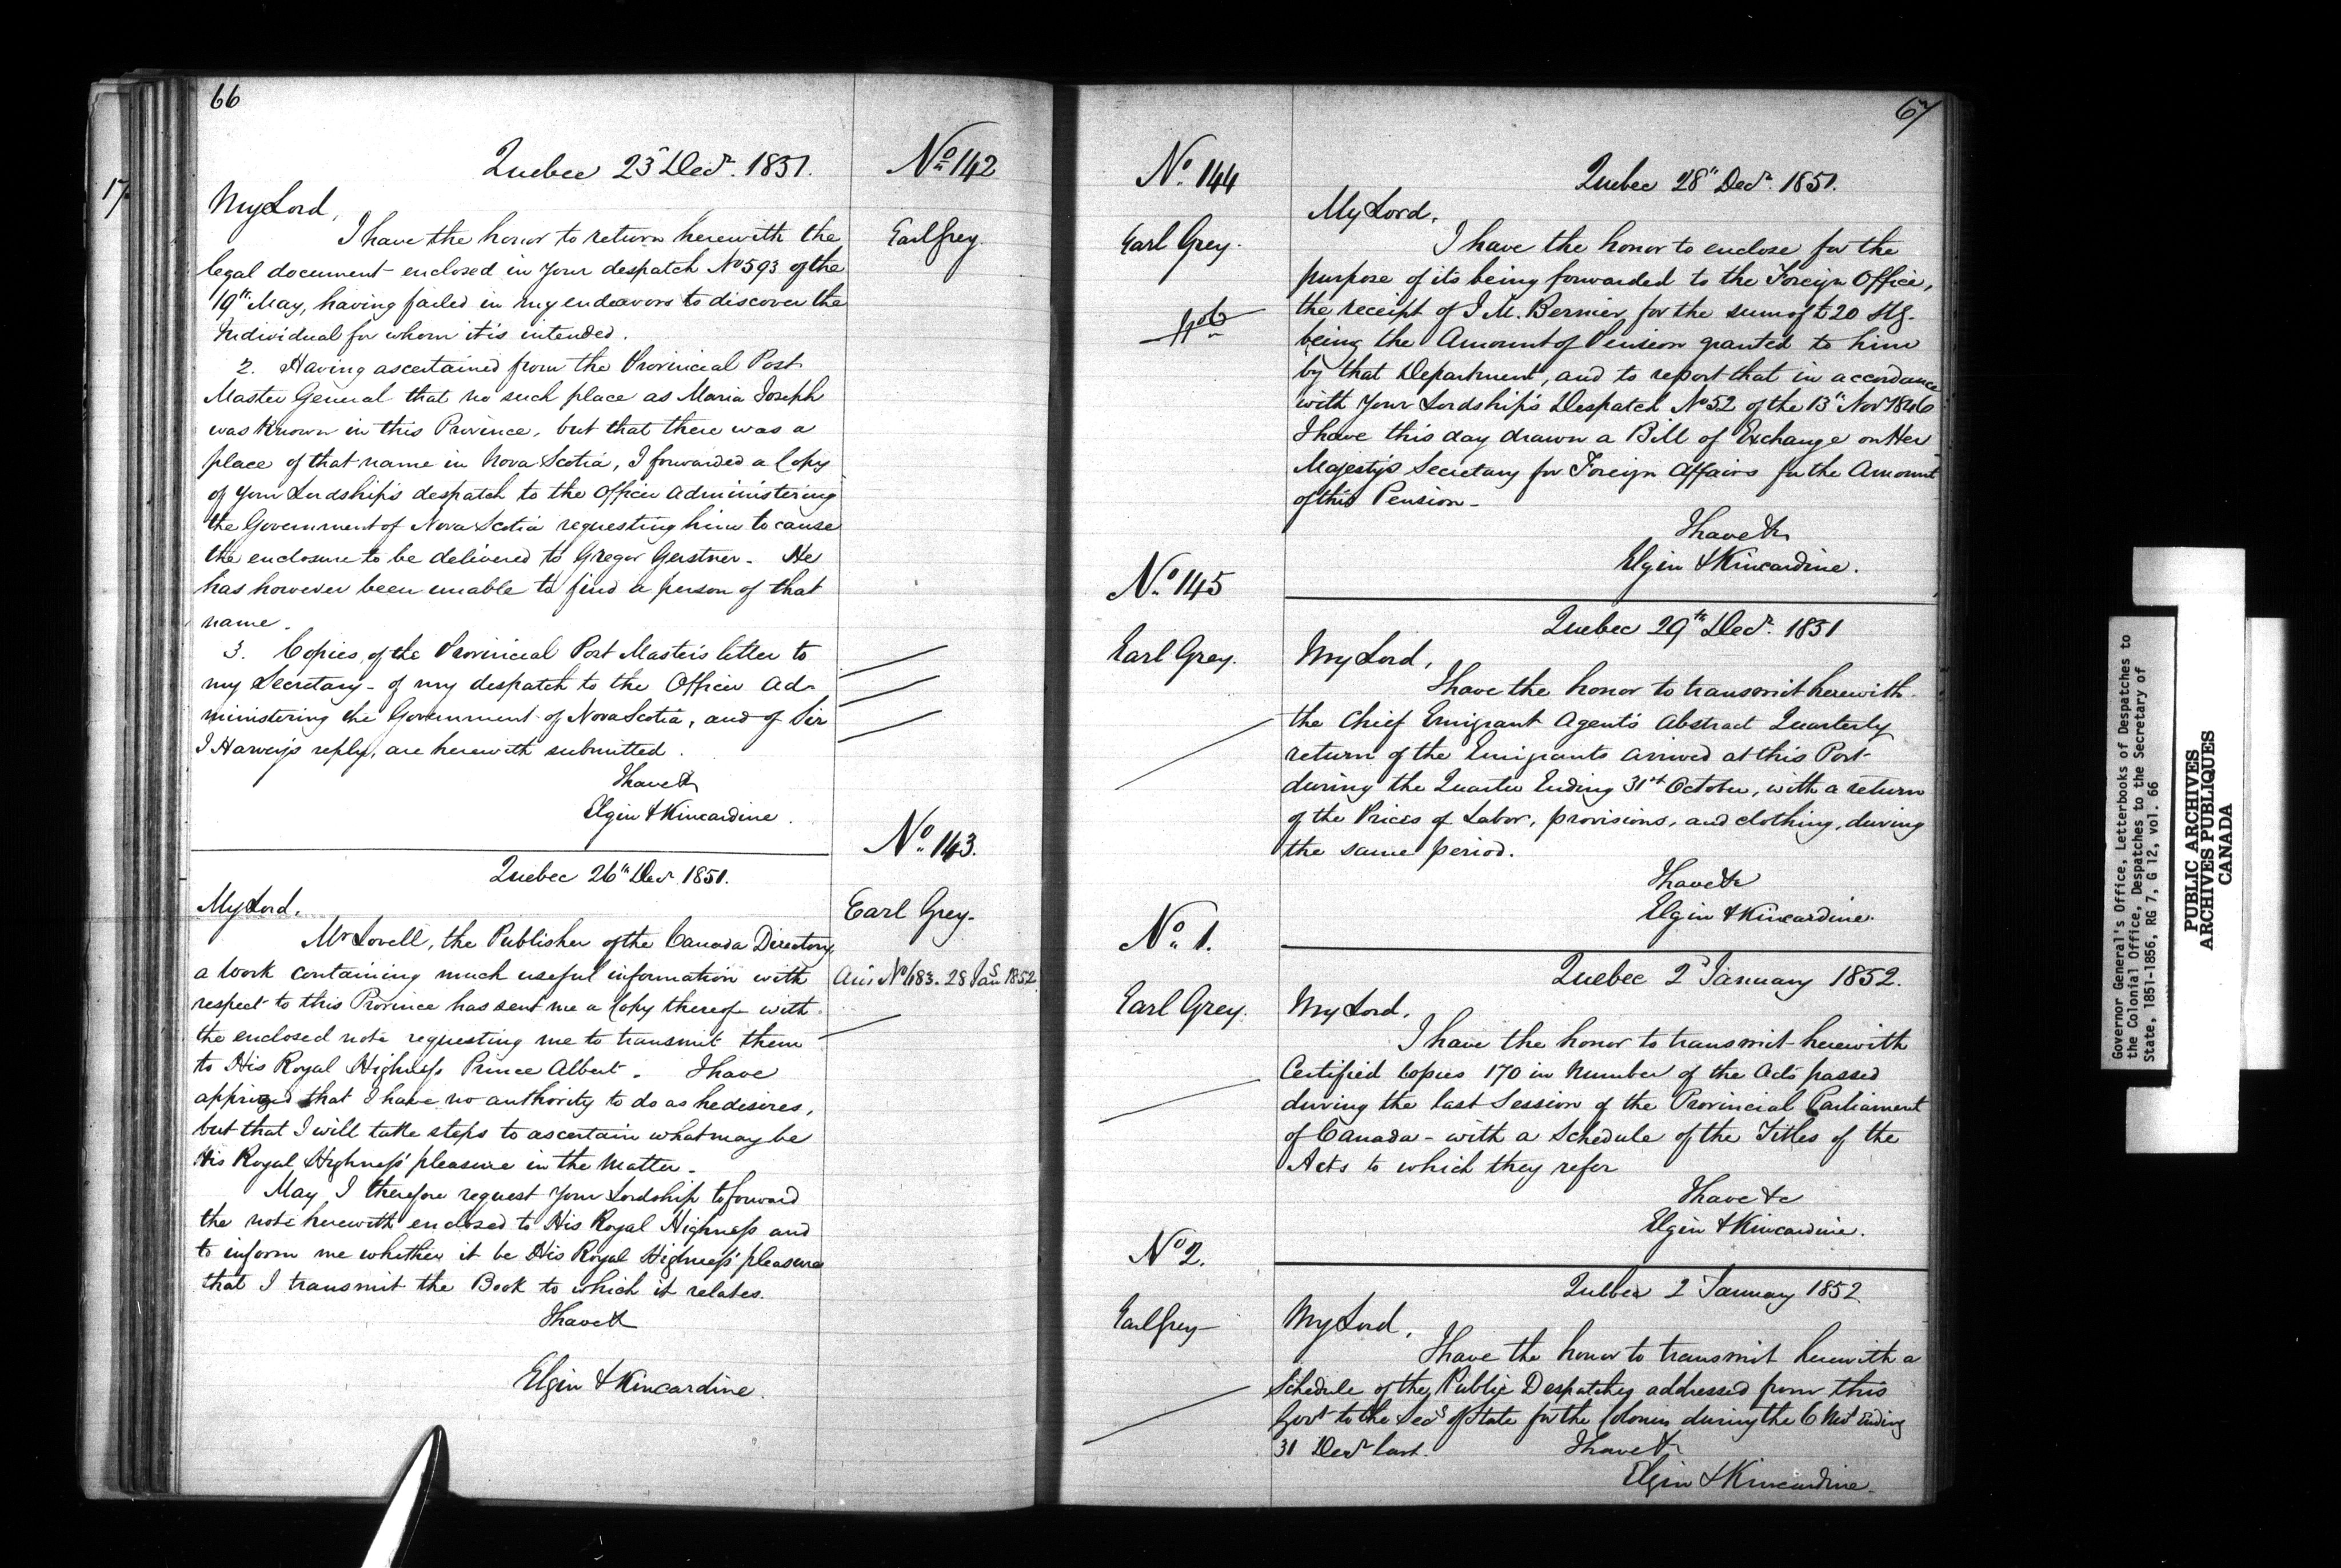 66
Quebec 23d Decr. 1851.
No. 142
My Lord,
Earl Grey.
I have the honor to return herewith the
legal document enclosed in your despatch No 593 of the
19th May, having failed in my endeavors to discover the
Individual for whom it is intended.
2. Having ascertained from the Provincial Post
Master General that no such place as Maria Joseph
was known in this Province, but that there was a
place of that name in Nova Scotia, I forwarded a Copy
of your Lordship's despatch to the Officer Administering
the Government of Nova Scotia requesting him to cause
the enclosure to be delivered to Gregor Gerstner. He
has however been unable to find a person of that
name.
3. Copies of the Provincial Post Master's letter to
my Secretary - of my despatch to the Officer Ad-
ministering the Government of Nova Scotia, and of Sir
J Harvey's reply, are herewith submitted.
I have &
Elgin & Kincardine.
No. 143.
Quebec 26th Decr 1851.
My Lord.
Earl Grey.
Mr Lovell, the Publisher of the Canada Directory,
a work containing much useful information with
Ans No 683. 28 Jany 1852
respect to this Province has sent me a Copy thereof with
the enclosed note requesting me to transmit them
to His Royal Highness Prince Albert. I have
apprized that I have no authority to do as he desires,
but that I will take steps to ascertain what may be
His Royal Highness' pleasure in the matter.
May I therefore request Your Lordship to forward
the note herewith enclosed to His Royal Highness and
to inform me whether it be His Royal Highness' pleasure
that I transmit the Book to which it relates.
I have &
Elgin & Kincardine.
67
No. 144
Quebec 28th Decr. 1851.
My Lord.
Earl Grey.
I have the honor to enclose for the
purpose of its being forwarded to the Foreign Office,
the receipt of J M. Bernier for the sum of £20 Stg.
being the Amount of Pension granted to him
by that Department, and to report that in accordance
with Your Lordship's Despatch No 52 of the 13th Novr 1846
I have this day drawn a Bill of Exchange on Her
Majesty's Secretary for Foreign Affairs for the Amount
of this Pension -
I have &
Elgin & Kincardine.
No. 145
Quebec 29th Decr. 1851
Earl Grey.
My Lord,
I have the honor to transmit herewith
the Chief Emigrant Agent's Abstract Quarterly
return of the Emigrants arrived at this Port
during the Quarter Ending 31st October, with a return
of the Prices of Labor, provisions, and clothing, during
the same period.
I have &c
Elgin & Kincardine.
No. 1.
Quebec 2d January 1852.
Earl Grey.
My Lord,
I have the honor to transmit herewith
Certified Copies 170 in Number of the Acts passed
during the last Session of the Provincial Parliament
of Canada - with a Schedule of the Titles of the
Acts to which they refer
I have &c
Elgin & Kincardine.
No 2.
Quebec 2 January 1852
Earl Grey
My Lord,
I have the honor to transmit herewith a
Schedule of the Public Despatches addressed from this
Govt to the Secy of State for the Colonies during the 6 Mos Ending
31 Decr last.
I have &
Elgin & Kincardine.
17
Governor General's Office, Letterbooks of Despatches to
the Colonial Office, Despatches to the Secretary of
State, 1851-1856, RG 7, G 12, vol. 66
PUBLIC ARCHIVES
ARCHIVES PUBLIQUES
CANADA